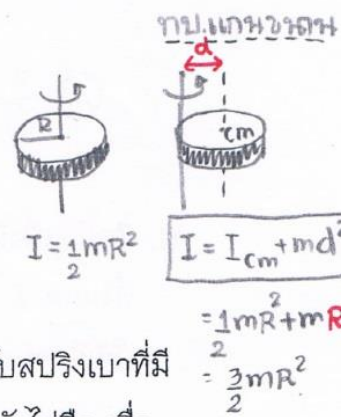 ทบ.แกนขนาน
d
R
cm
I = 1/2 mR²
I = Icm + md²
= 1/2 mR² + mR
= 3/2 mR²
บสปริงเบาที่มี